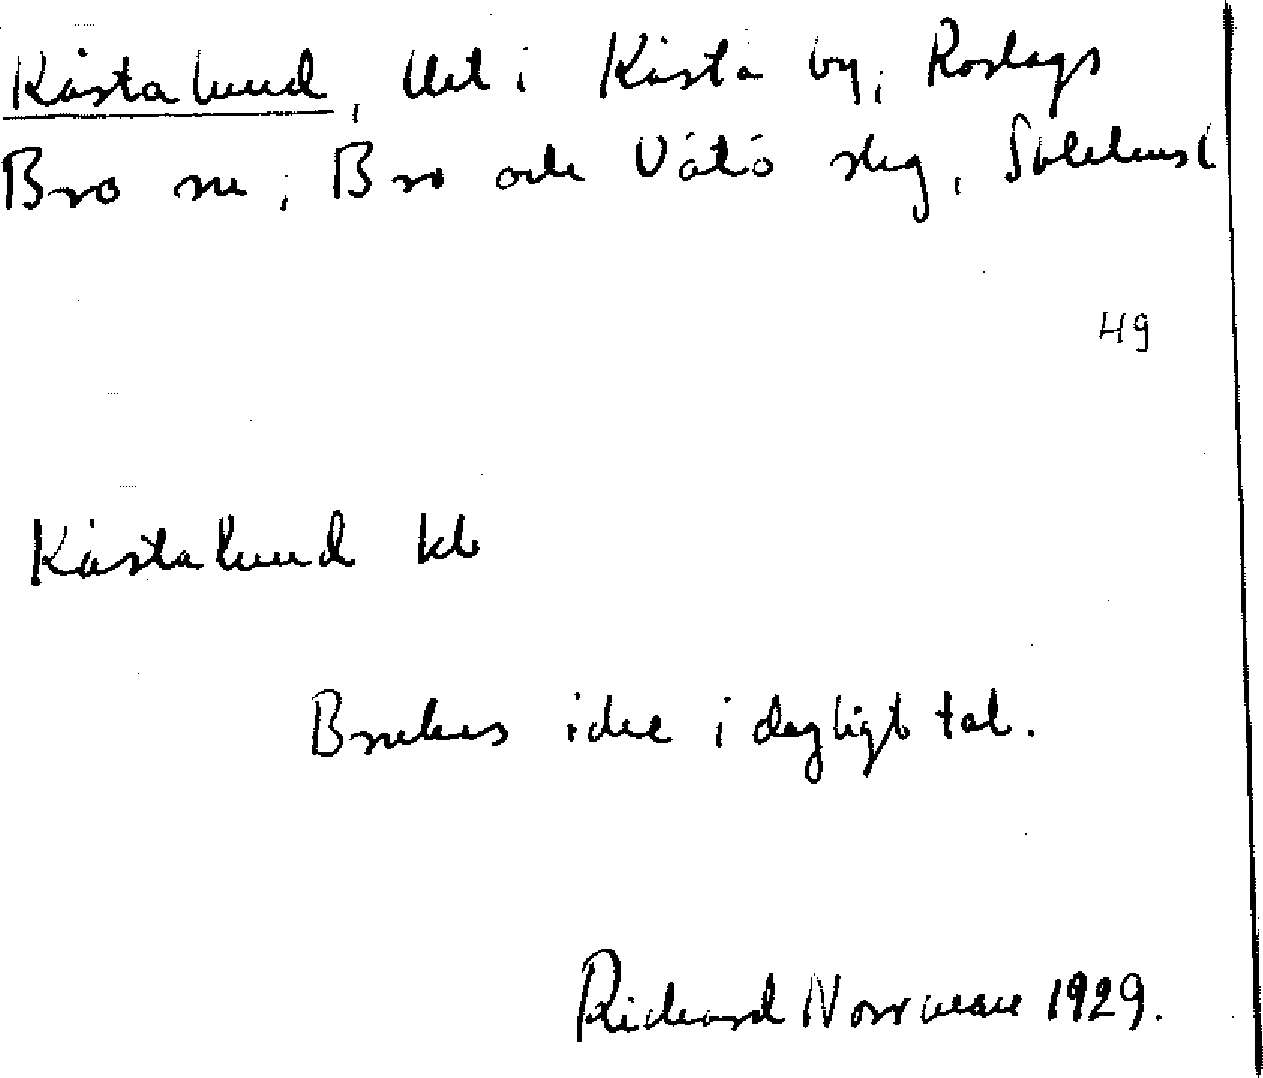 Kåstalund, lht i Kåsta by, Roslags
Bro sn, Bro och Vätö skg, Sthlms l
49
Kåstalund kb
Brukas icke i dagligt tal.
Richard Norrman 1929.